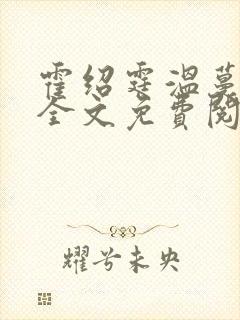 霍绍霆温蔓
全文免费阅
耀兮未央